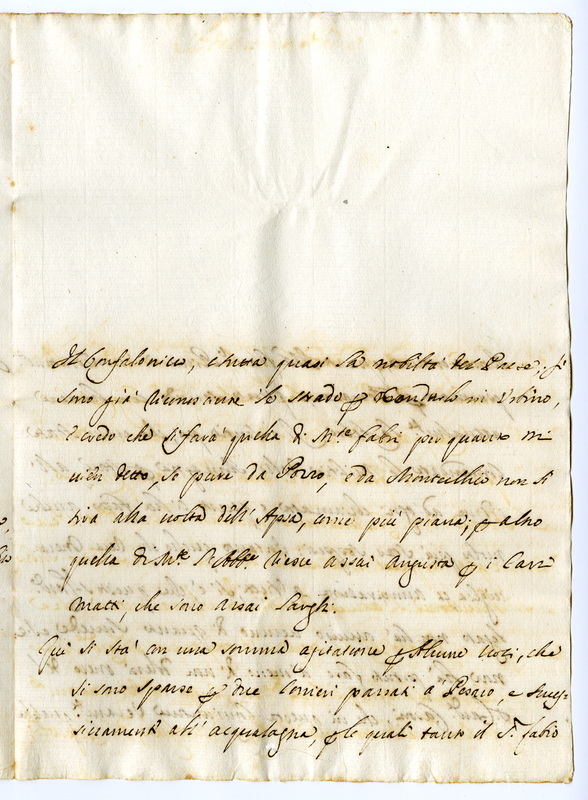 Il Confalonier, e tutta quasi la nobiltà del Paese, si
sono già riconosciute le strade p condurlo in Urbino,
e credo che si farà quella di M.te fabri per quanto mi
vien detto, se pure da Porro, e da Montecchio non si
tira alla volta dell'Apsa, come più piana; p altro
quella di M.te riesce assai angusta p i Carri
matti, che sono assai larghi.
Quì si stà in una somma agitatione p Alcune voci, che
si sono sparse p due Corrieri passati a Pesaro, e succes-
sivament all'acqualagna, p le quali tanto il S.r fabio